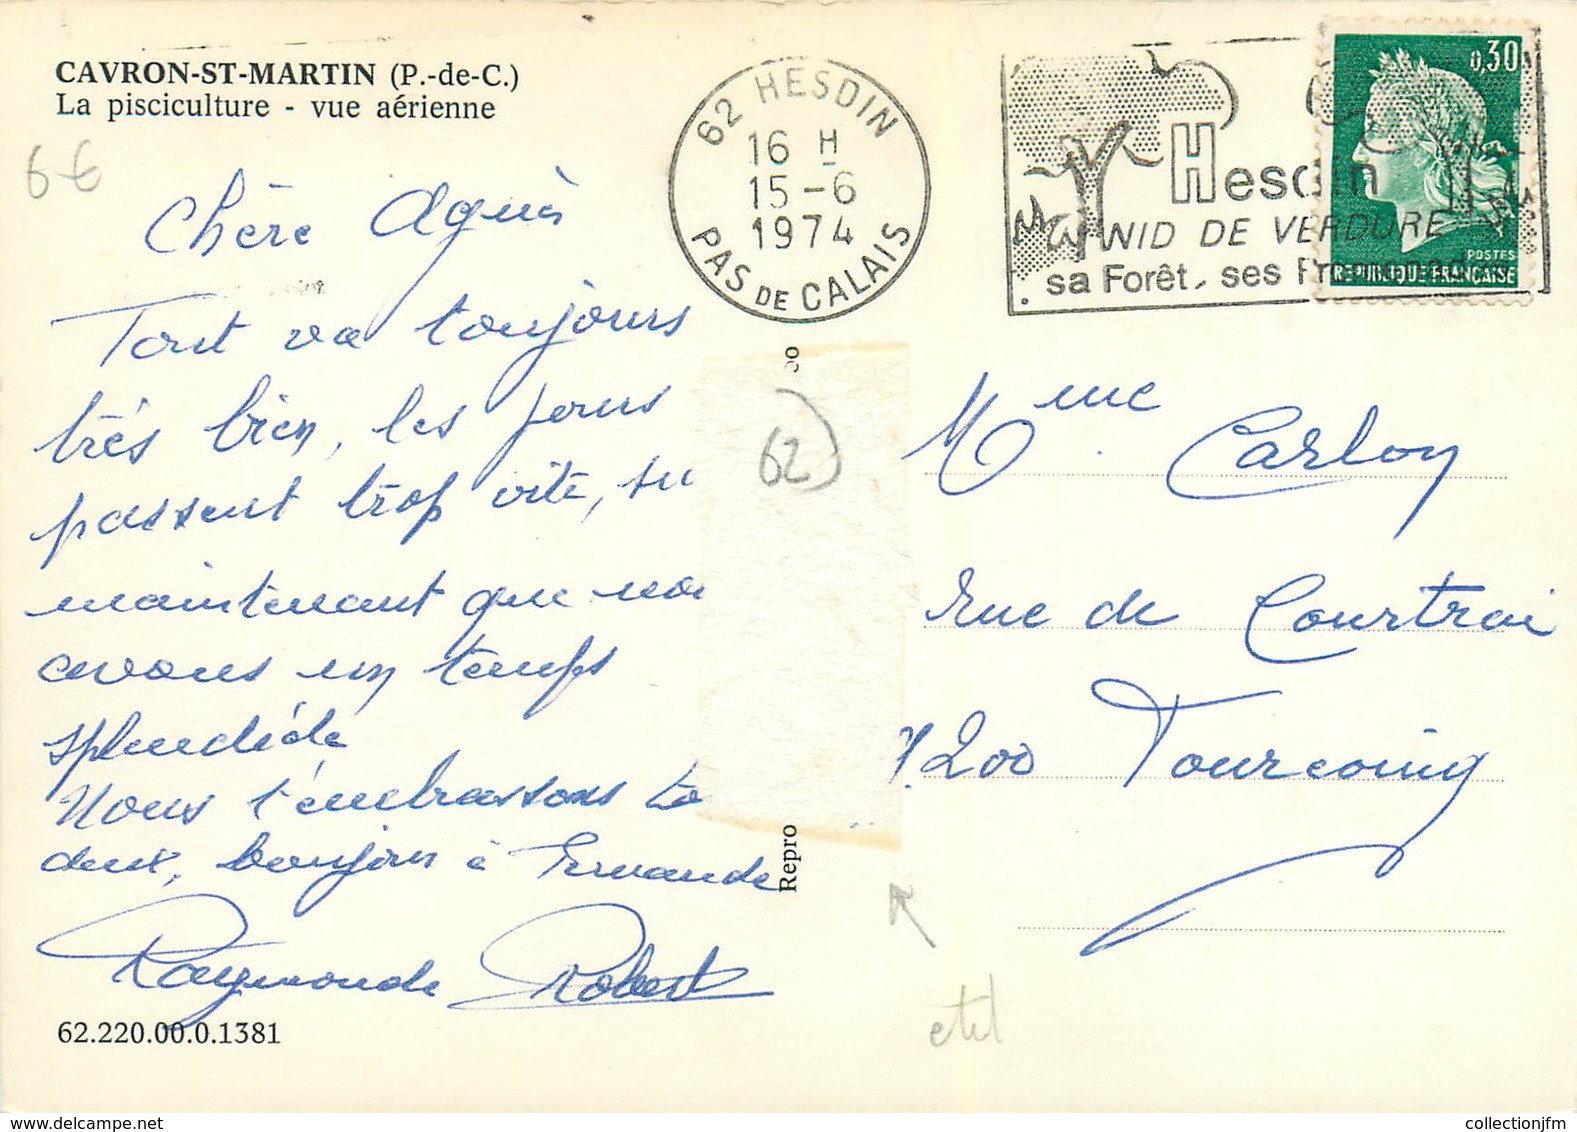 CAVRON-ST-MARTIN (P.-de-C.)
La pisciculture - vue aérienne
66
Chère Agnès
Tout va toujours
très bien, les jours
passent trop vite, su
maintenant que nou
avons un temps
splendide
Nous t'embrassons to
deux, bonjour à Fernande
Raymonde Robert
62.220.00.0.1381
62 HESDIN
16 H
15-6
1974
PAS DE CALAIS
Hesdin
NID DE VERDURE
sa Forêt, ses Promenad
0,30
POSTES
REPUBLIQUE FRANÇAISE
62
Repro
Mme Carloy
rue de Courtrai
200 Tourcoing
collectionjfm